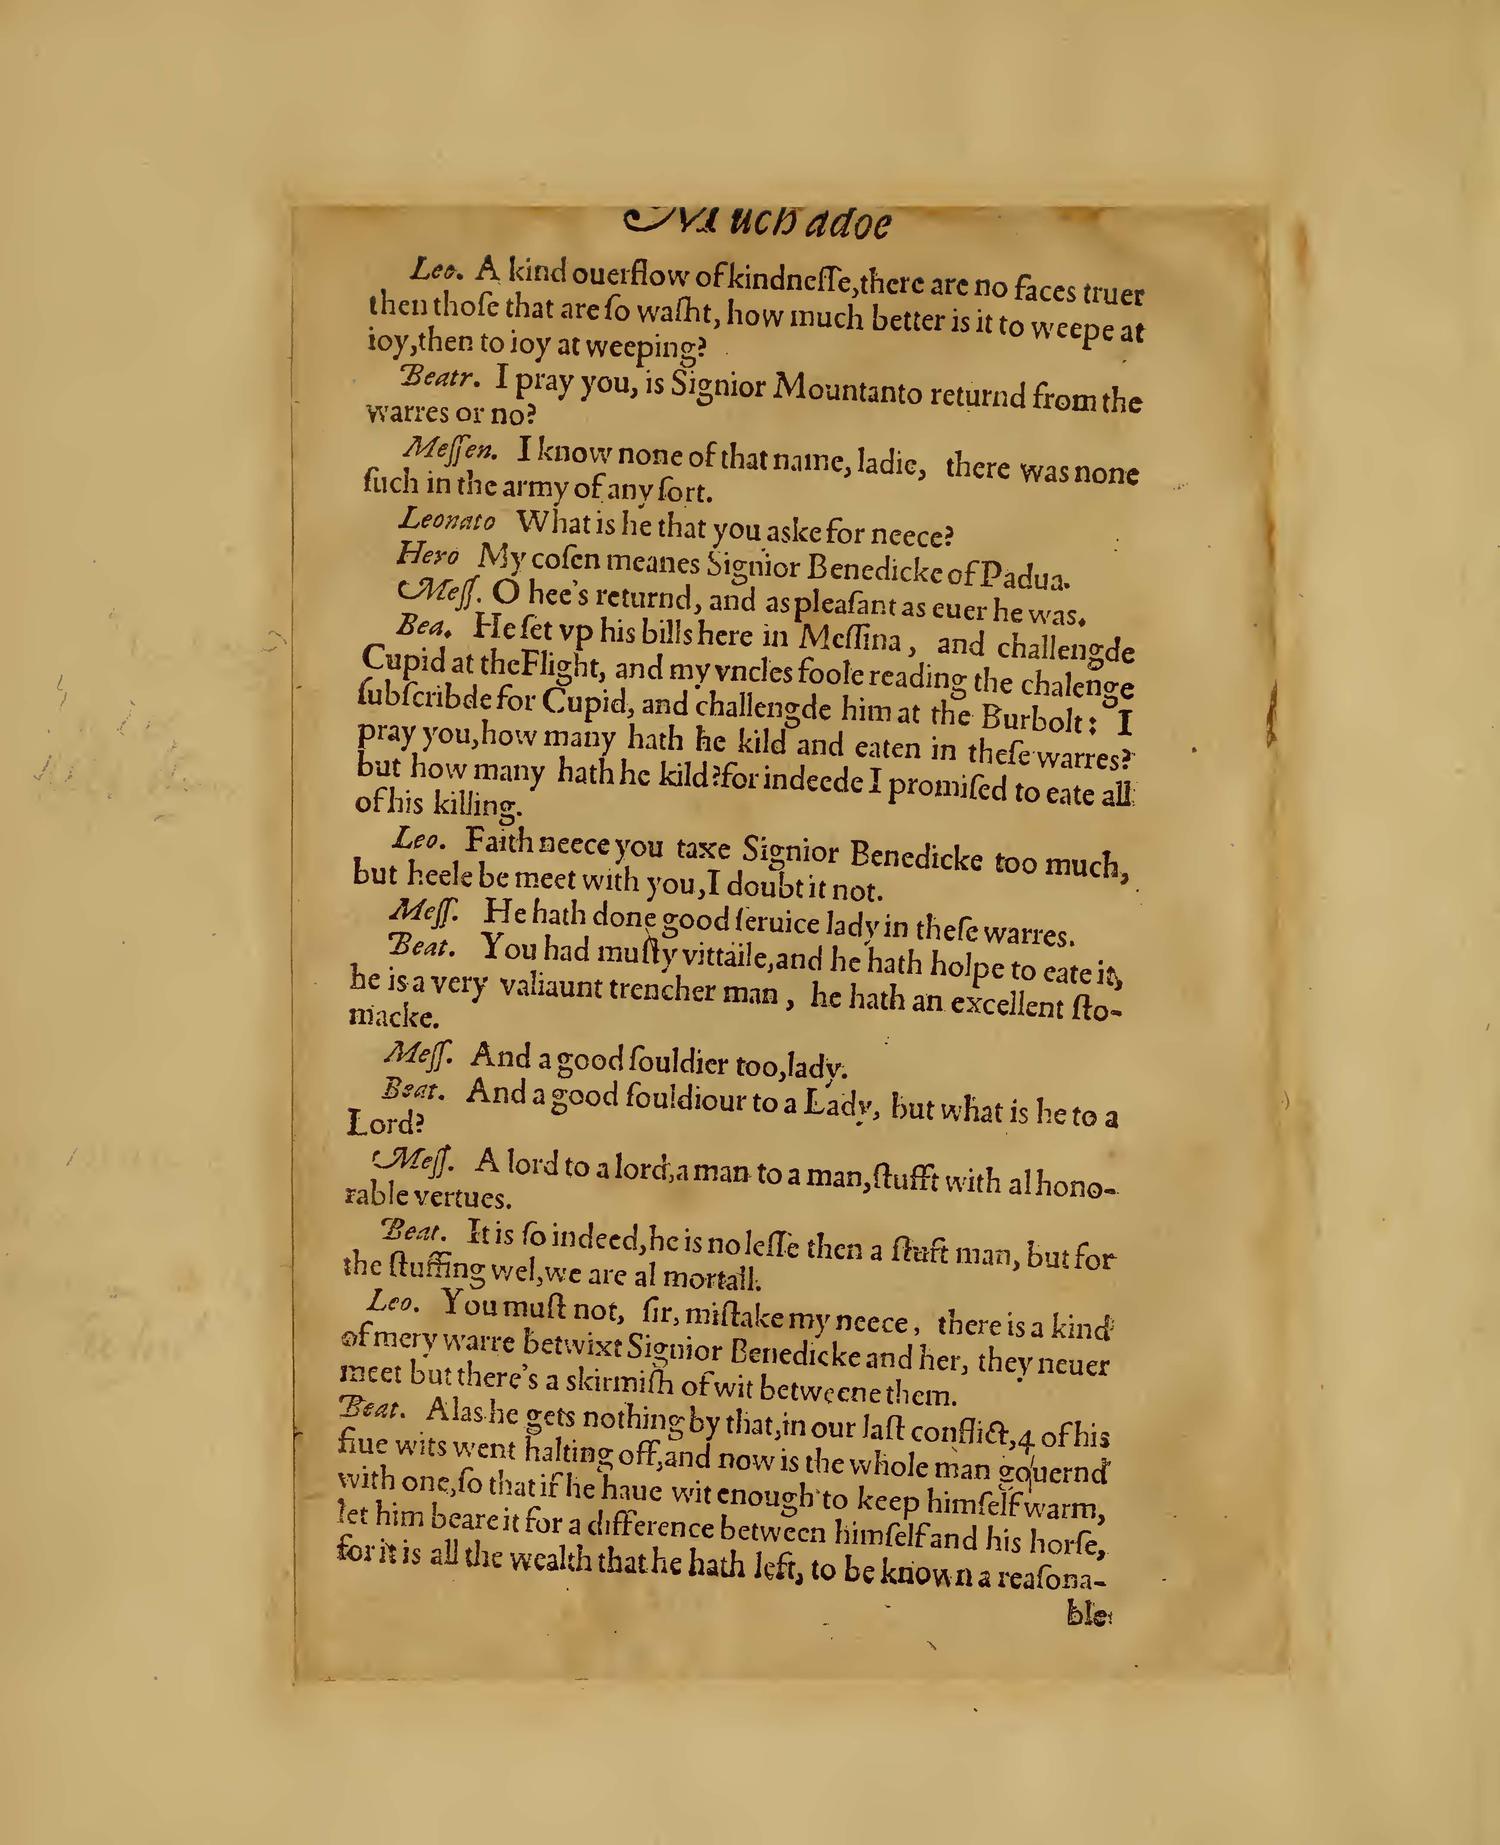 Much adoe
Leo. A kind ouerflow of kindneſſe, there are no faces truer
then thoſe that are ſo waſht, how much better is it to weepe at
ioy, then to ioy at weeping?
Beatr. I pray you, is Signior Mountanto returnd from the
warres or no?
Meſſen. I know none of that name, ladie, there was none
ſuch in the army of any ſort.
Leonato What is he that you aske for neece?
Hero My coſen meanes Signior Benedicke of Padua.
Meſſ. O hee's returnd, and as pleaſant as euer he was.
Bea. He ſet vp his bills here in Meſſina, and challengde
Cupid at the Flight, and my vncles foole reading the chalenge
ſubſcribde for Cupid, and challengde him at the Burbolt: I
pray you, how many hath he kild and eaten in theſe warres?
but how many hath he kild? for indeede I promiſed to eate all
of his killing.
Leo. Faith neece you taxe Signior Benedicke too much,
but heele be meet with you, I doubt it not.
Meſſ. He hath done good ſeruice lady in theſe warres.
Beat. You had muſty vittaile, and he hath holpe to eate it,
he is a very valiaunt trencher man, he hath an excellent ſto-
macke.
Meſſ. And a good ſouldier too, lady.
Beat. And a good ſouldiour to a Lady, but what is he to a
Lord?
Meſſ. A lord to a lord, a man to a man, ſtufft with al hono-
rable vertues.
Beat. It is ſo indeed, he is no leſſe then a ſtuft man, but for
the ſtuffing wel, we are al mortall.
Leo. You muſt not, ſir, miſtake my neece, there is a kind
of mery warre betwixt Signior Benedicke and her, they neuer
meet but there's a skirmiſh of wit betweene them.
Beat. Alas he gets nothing by that, in our laſt conflict, 4 of his
fiue wits went halting off, and now is the whole man gouernd
with one, ſo that if he haue wit enough to keep himſelf warm,
let him beare it for a difference between himſelf and his horſe,
for it is all the wealth that he hath left, to be known a reaſona-
ble